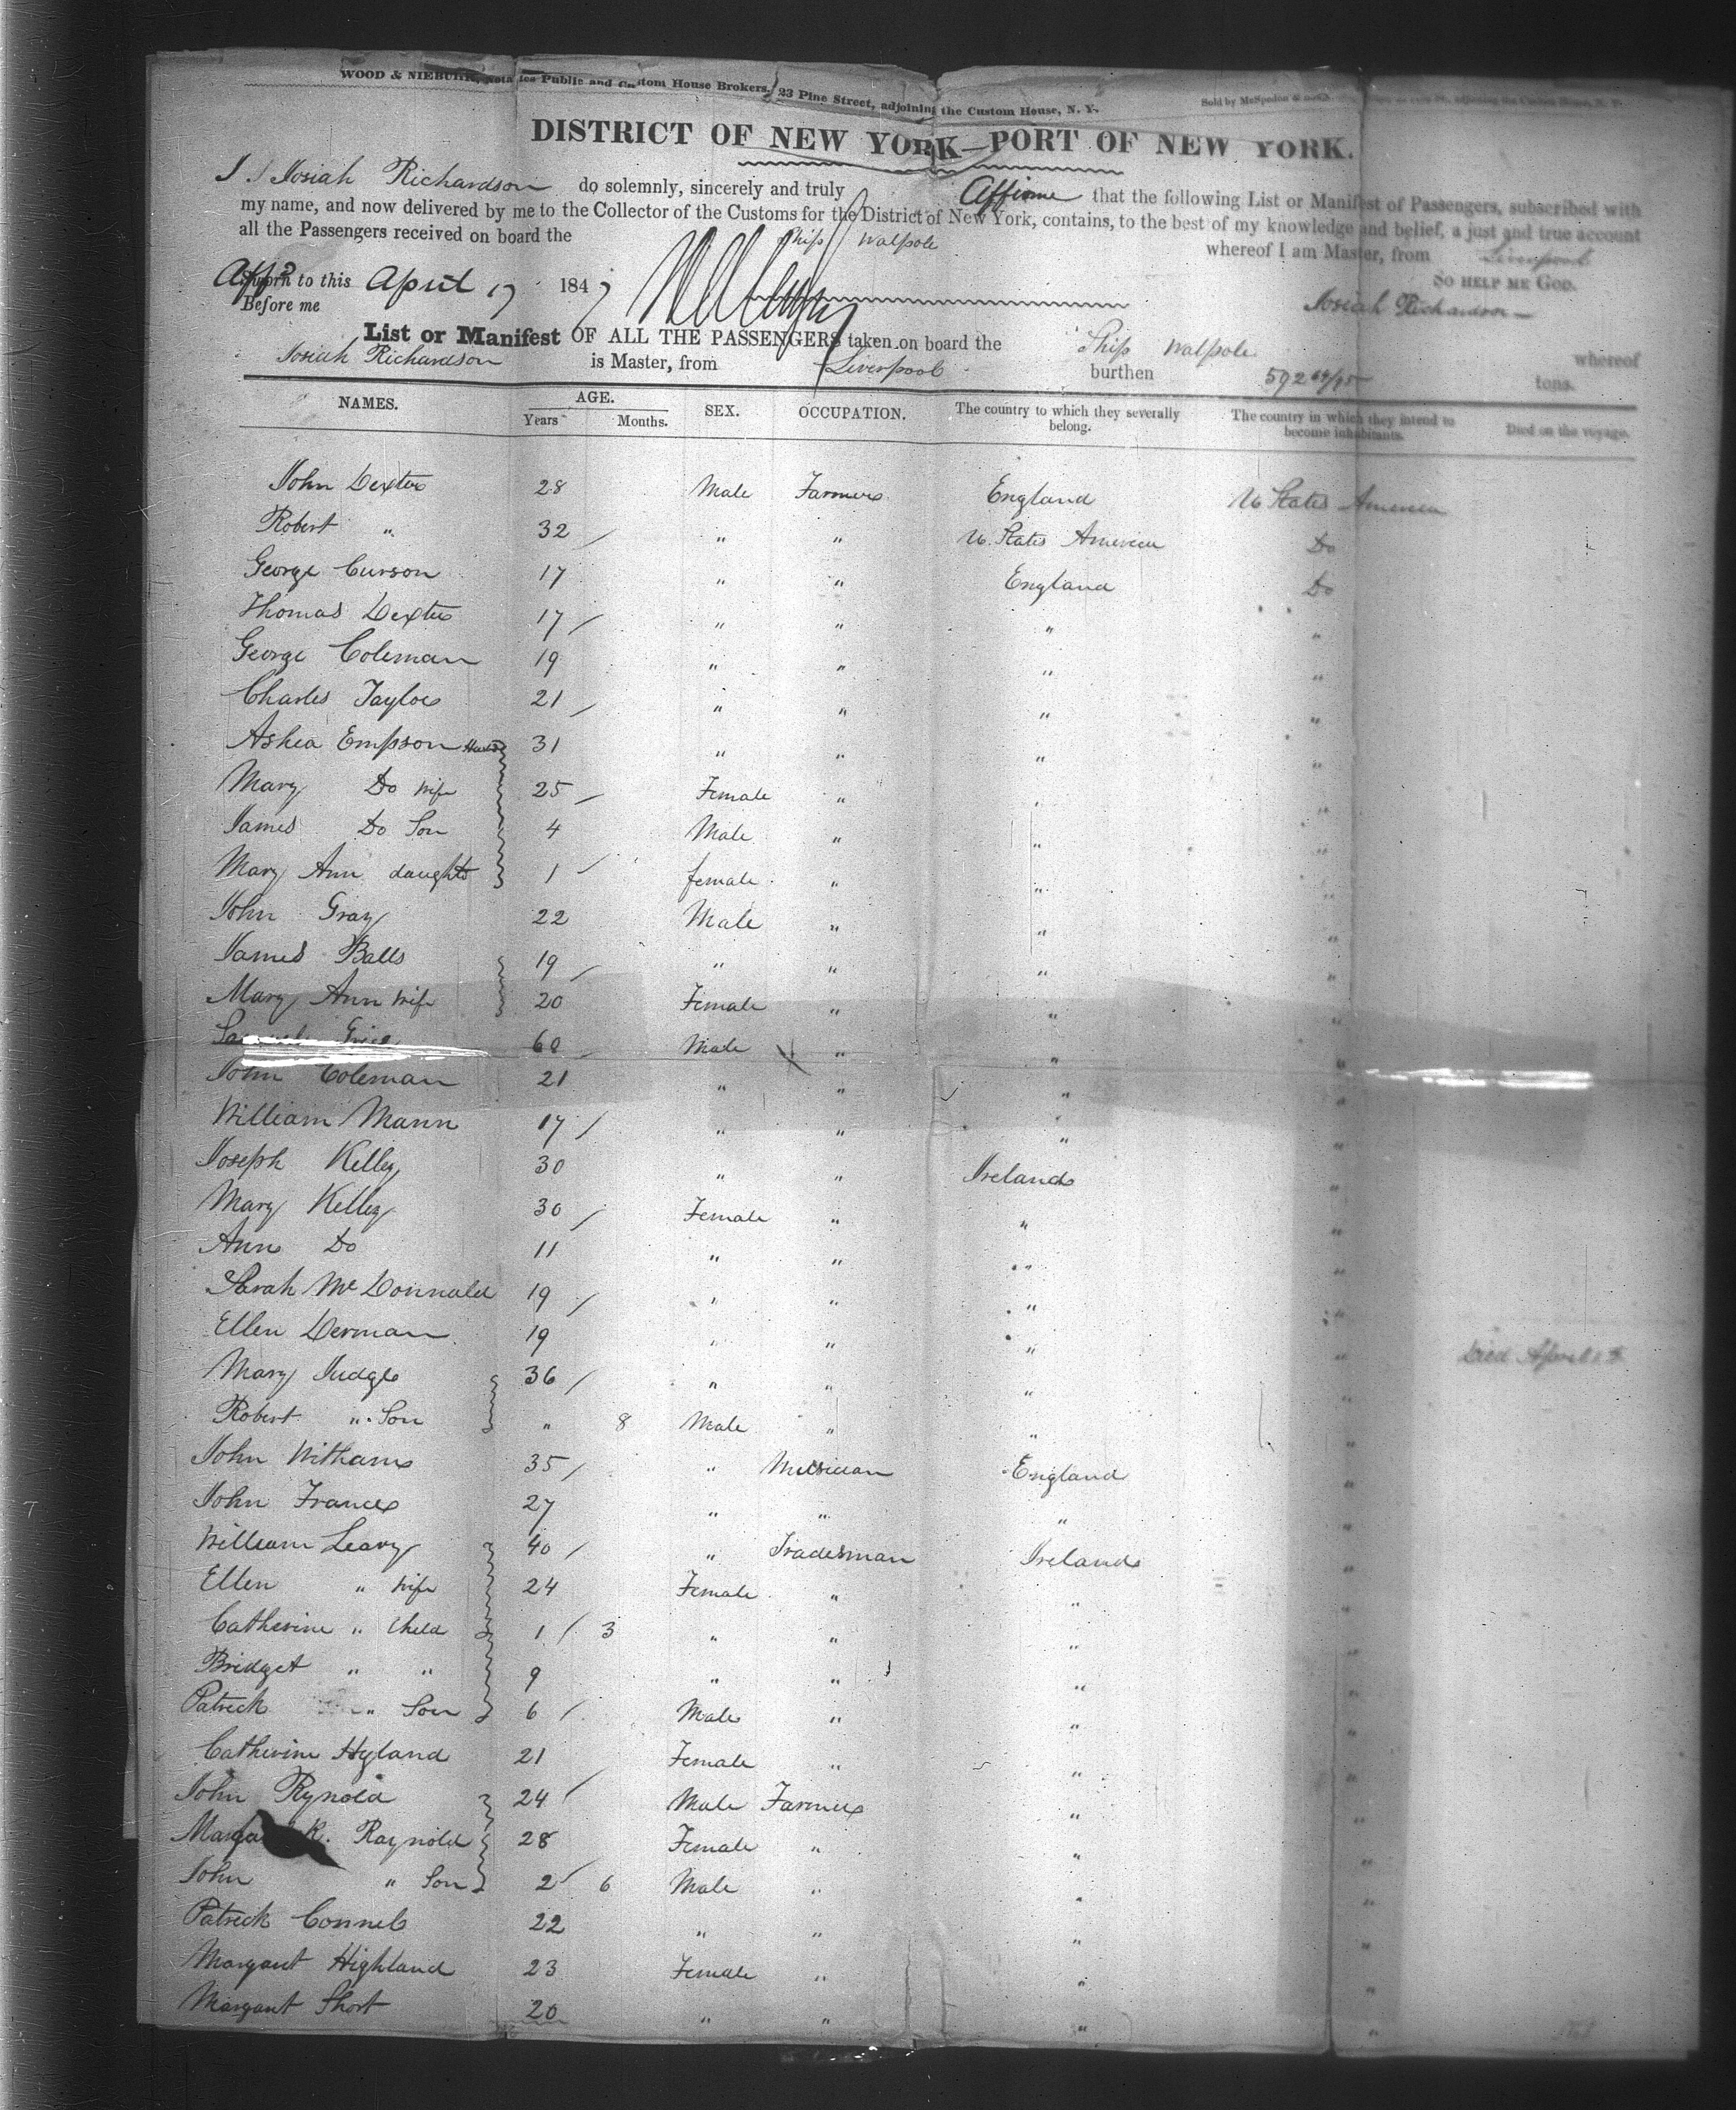 WOOD & NIEBUHR, Notaries Public and Custom House Brokers, 23 Pine Street, adjoining the Custom House, N. Y.
Sold by
DISTRICT OF NEW YORK—PORT OF NEW YORK.
I Josiah Richardson do solemnly, sincerely and truly Affirm that the following List or Manifest of Passengers, subscribed with
my name, and now delivered by me to the Collector of the Customs for the District of New York, contains, to the best of my knowledge and belief, a just and true account
all the Passengers received on board the Ship Walpole whereof I am Master, from Liverpool
SO HELP ME GOD.
Affd Sworn to this April 17 1847
Before me
Josiah Richardson
List or Manifest OF ALL THE PASSENGERS taken on board the Ship Walpole whereof
Josiah Richardson is Master, from Liverpool burthen 592 64/95 tons.
NAMES. AGE. Years Months. SEX. OCCUPATION. The country to which they severally belong. The country in which they intend to become inhabitants. Died on the voyage.
John Dexter 28 Male Farmer England U States America
Robert " 32 " " U. States America Do
George Curson 17 " " England Do
Thomas Dexter 17 " " " "
George Coleman 19 " " " "
Charles Taylor 21 " " " "
Ashea Empson 31 " " " "
Mary Do Wife 25 Female " " "
James Do Son 4 Male " " "
Mary Ann daughtr 1 female " " "
John Gray 22 Male " " "
James Balls 19 " " " "
Mary Ann Wife 20 Female " " "
60 Male " " "
John Coleman 21 " " " "
William Mann 17 " " " "
Joseph Kelley 30 " " Ireland "
Mary Kelley 30 Female " " "
Ann Do 11 " " " "
Sarah McDonnald 19 " " " "
Ellen Derman 19 " " " " Died April
Mary Judge 36 " " " "
Robert " Son " 8 Male " " "
John Withams 35 " Musician England "
John Frances 27 " " " "
William Leavy 40 " Tradesman Ireland "
Ellen " Wife 24 Female " " "
Catherine " Child 1 3 " " " "
Bridget " " 9 " " " "
Patrick " Son 6 Male " " "
Catherine Hyland 21 Female " " "
John Rynold 24 Male Farmer " "
R. Raynold 28 Female " " "
John " Son 2 6 Male " " "
Patrick Connel 22 " " " "
Margaut Highland 23 Female " " "
Margaut Short 20 " " " "